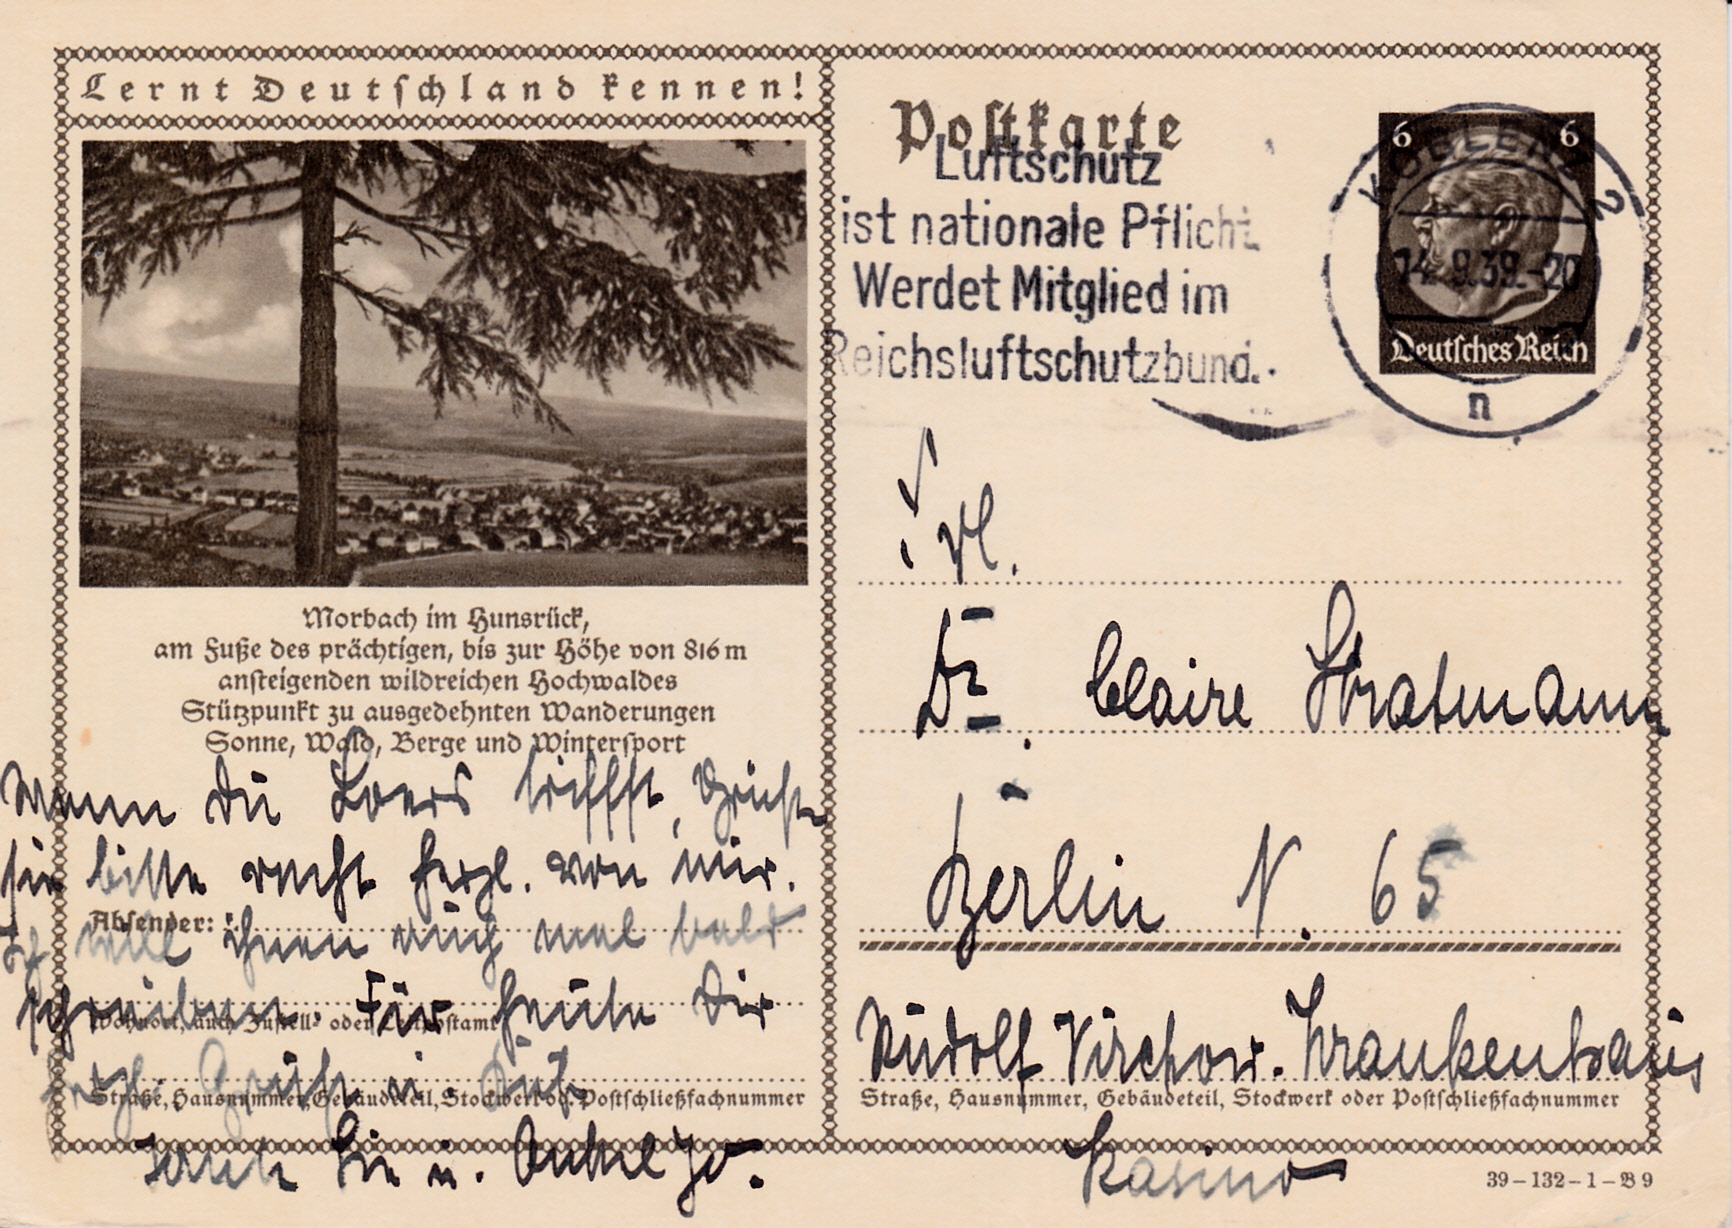 Lernt Deutschland kennen!
Morbach im Hunsrück,
am Fuße des prächtigen, bis zur Höhe von 816 m
ansteigenden wildreichen Hochwaldes
Stützpunkt zu ausgedehnten Wanderungen
Sonne, Wald, Berge und Wintersport
Wenn Du triffst, Grüße
sie bitte recht herzl. von mir.
Absender:
Ich will ihnen auch mal bald
schreiben. Für heute Dir
Wohnort, auch Zustell- oder Leitpostamt
herzl. Grüße u.
Straße, Hausnummer, Gebäudeteil, Stockwerk od. Postschließfachnummer
Tante u. Onkel Jo.
Postkarte
Luftschutz
ist nationale Pflicht
Werdet Mitglied im
Reichsluftschutzbund.
6 6
KOBLENZ 2
14.9.39.-20
Deutsches Reich
n
Frl.
Dr. Claire Stratmann
Berlin N. 65
Rudolf Virchow-Krankenhaus
Straße, Hausnummer, Gebäudeteil, Stockwerk oder Postschließfachnummer
Kasino
39-132-1-B 9